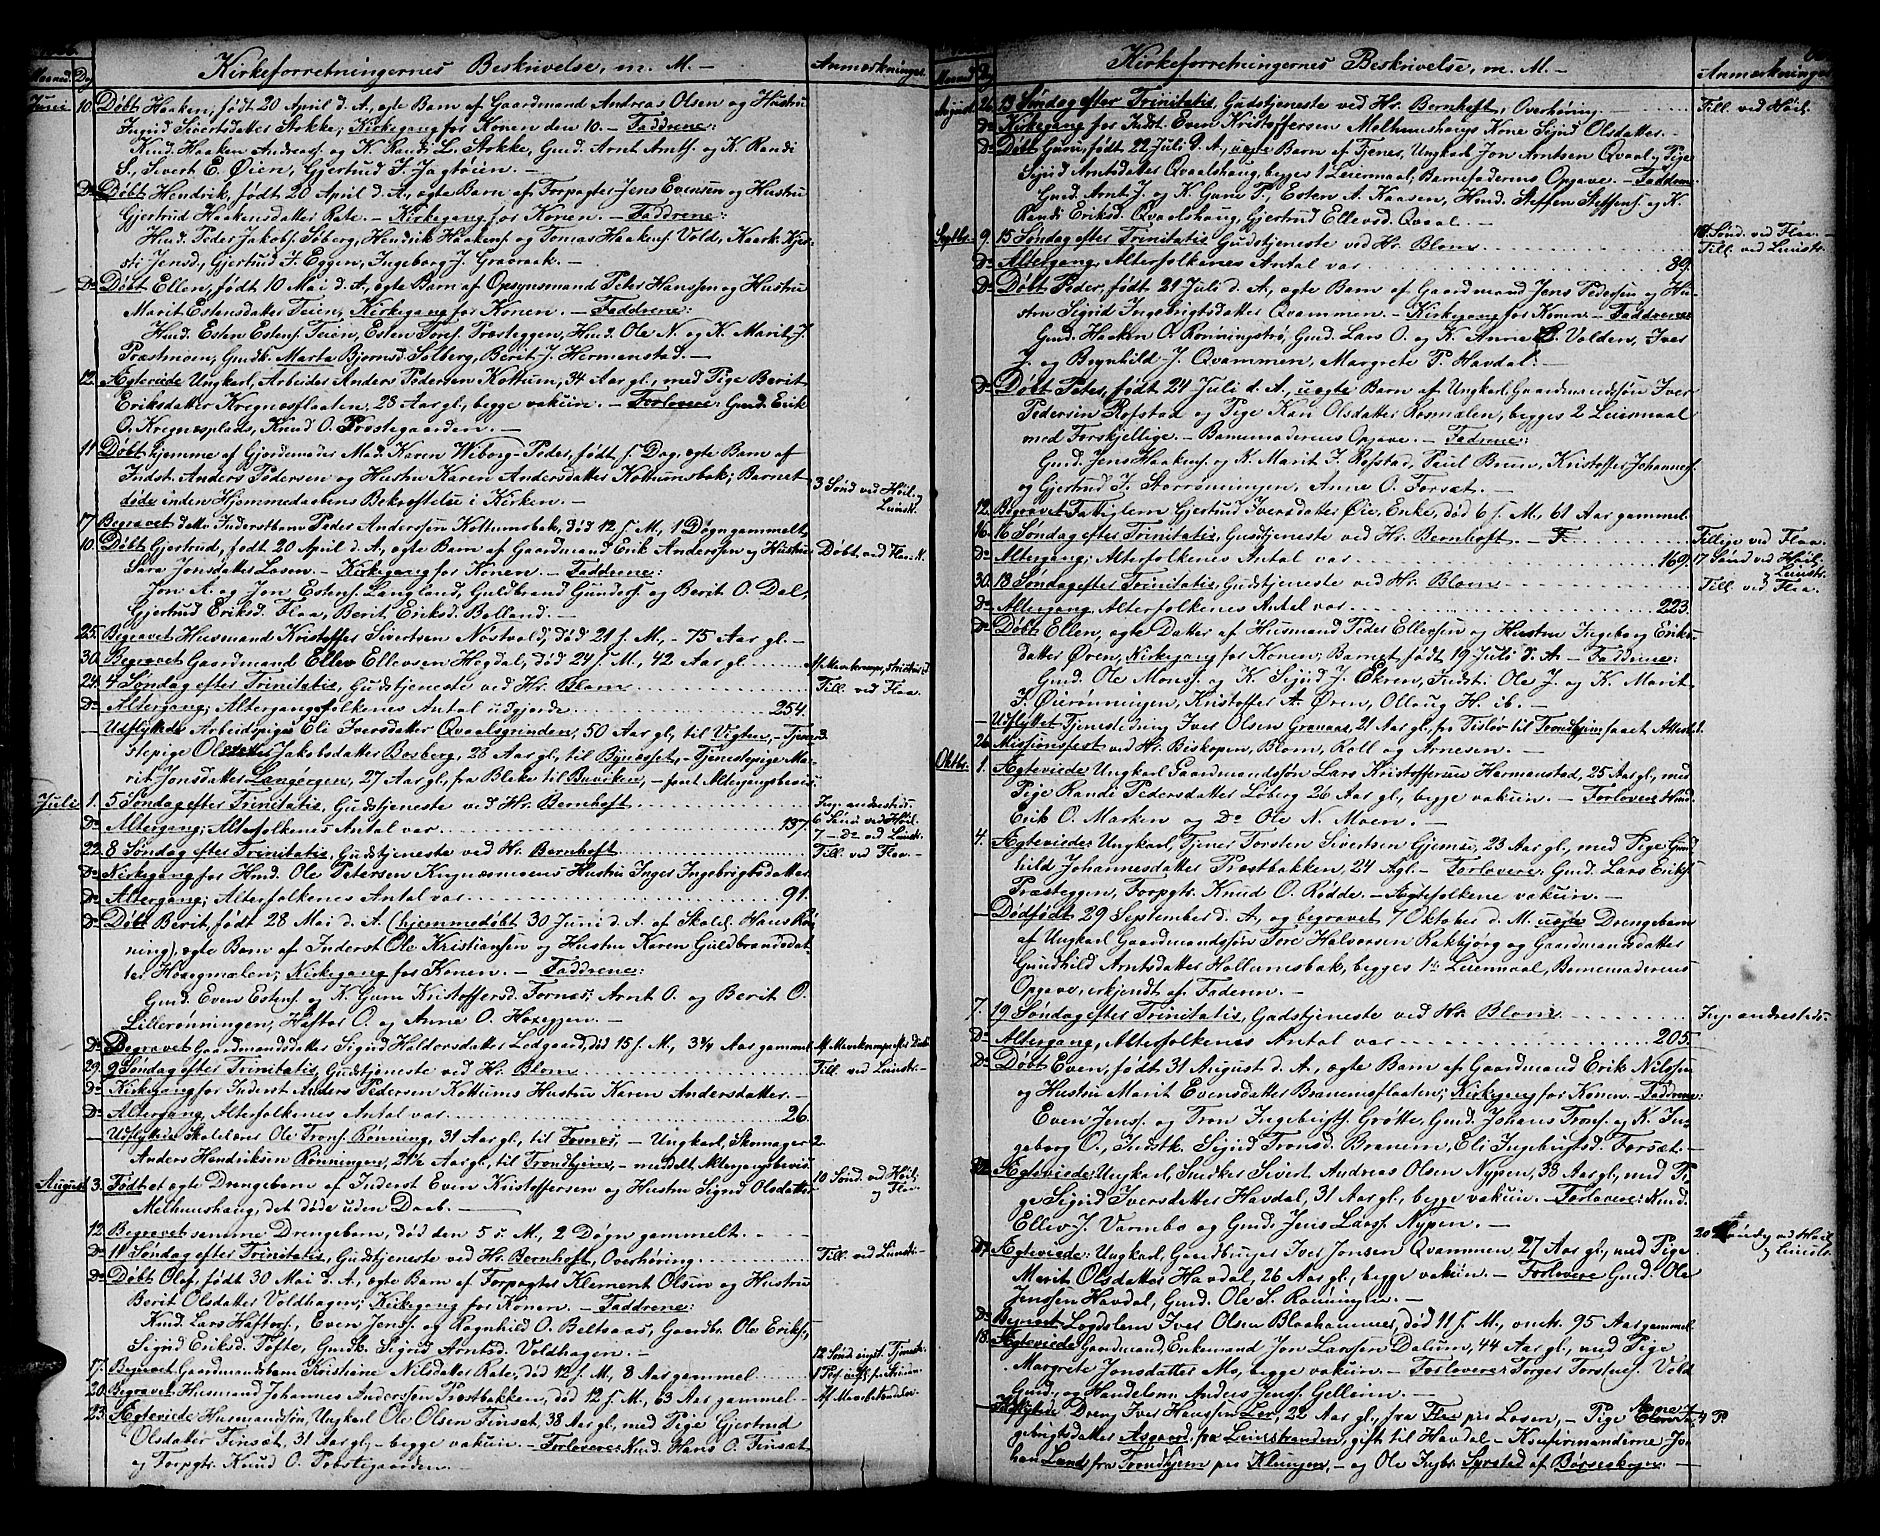 Kirkeforretningernes Beskrivelse, m. M. — Anmærkninger.
Maaned. Dag
Juni 10. Døbt Haaken, født 20 April d. A., ægte Barn af Gaardmand Andreas Olsen og Hustru
Ingrid Sivertsdatter Stokke; Kirkegang for Konen den 10. — Faddrene:
Knud, Haaken Andreas. og K. Randi L. Stokke, Gmd. Arnt Arntf. og K. Randi
S., Sivert E. Øien, Gjertrud J. Jagtøien. —
Do Døbt Hendrik, født 20 April d. A., ægte Barn af Forpagter Jens Evensen og Hustru
Gjertrud Haakensdatter Rate. — Kirkegang for Konen. — Faddrene:
Hmd. Peder Jakobs. Søberg, Hendrik Haakens. og Tomas Haakens. Vold,
Jensd., Gjertrud J. Eggen, Ingeborg J. Gravraak. —
Do Døbt Ellen, født 10 Mai d. A., ægte Barn af Opsynsmand Peter Hanssen og Hustru
Marit Estensdatter Teien, Kirkegang for Konen. — Faddrene:
Hmd. Esten Estens. Teien, Esten Tores. Træteggen, Hmd. Ole N. og K. Marit J.
Præstmoen, Gmdk. Marta Bjørnsd. Solberg, Berit J. Hermanstad. —
12. Ægteviede Ungkarl, Arbeider Anders Pedersen Kottum, 34 Aar gl., med Pige Berit
Eriksdatter Kregnæsflaaten, 28 Aar gl., begge vakuin. — Forlovere: Gmd. Erik
O. Kregnæsplads, Knud O. Prestegaarden. —
11. Døbt hjemme af Gjordemoder Mad. Karen Wiborg Peder, født s. Dag, ægte Barn af
Indst. Anders Pedersen og Hustru Karen Andersdatter Kottumsbak; Barnet
døde inden Hjemmedaabens Bekræftelse i Kirken. — 3 Sønd. ved Høil. og Leinstr.
17. Begravet dette Inderstbarn Peder Anderssen Kottumsbak, død 12 s. M., 1 Døgn gammelt.
10. Døbt Gjertrud, født 20 April d. A., ægte Barn af Gaardmand Erik Andersen og Hustru Døbt ved Flaa.
Sara Jonsdatter Losen. — Kirkegang for Konen. — Faddrene:
Jon A. og Jon Estens. Langland, Guldbrand Gunders. og Berit O. Dal,
Gjertrud Eriksd. Flaa, Berit Eriksd. Bolland. —
25. Begravet Husmand Kristoffer Sivertsen Nostvold, død 21 s. M., 75 Aar gl. —
30. Begravet Gaardmand Ellev Ellevsen Hogdal, død 24 s. M., 42 Aar gl.
24. 4 Søndag efter Trinitatis, Gudstjeneste ved Hr. Blom Till. ved Flaa.
Do Altergang; Altergangsfolkenes Antal udgjorde 254.
— Udflyttede Arbeidspige Eli Iversdatter Qvaalsgrinden, 50 Aar gl., til Vigten, — Tjene-
stepige Jakobsdatter Bosberg, 28 Aar gl., til Bynesset, — Tjenestepige Ma-
rit Jonsdatter Langørgen, 27 Aar gl., fra Bleke til Buviken, — faaet Altergangsbevis.
Juli 1. 5 Søndag efter Trinitatis, Gudstjeneste ved Hr. Bernhoft Ing. andresteds.
Do Altergang; Alterfolkenes Antal var 137. 6 Sønd. ved Høil.
7 — Do ved Leinstr.
22. 8 Søndag efter Trinitatis, Gudstjeneste ved Hr. Bernhoft Till. ved Flaa.
Do Kirkegang for Hmd. Ole Petersen Kregnæsmoens Hustru Inger Ingebrigtsdatter.
Do Altergang; Alterfolkenes Antal var 91.
Do Døbt Berit, født 28 Mai d. A. (hjemmedøbt 30 Juni d. A. af Skolel. Hans Røn-
ning), ægte Barn af Inderst Ole Kristiansen og Hustru Karen Guldbrandsdat-
ter Hoaegmælen; Kirkegang for Konen. — Faddrene:
Gmd. Even Estens. og K. Guru Kristoffersd. Fornæs, Arnt O. og Berit O.
Lillerønningen, Haftor O. og Anne O. Hoxeggen. —
Do Begravet Gaardmandsdatter Sigrid Haldorsdatter Ledgaard, død 15 s. M., 3¼ Aar gammel.
29. 9 Søndag efter Trinitatis, Gudstjeneste ved Hr. Blom Till. ved Leinstr.
Do Kirkegang for Inderst Anders Pedersen Kottums Hustru Karen Andersdatter.
Do Altergang, Alterfolkenes Antal var 26.
— Udflyttede Skolelærer Ole Trons. Rønning, 31 Aar gl., til Fornæs, — Ungkarl, Skomager
Anders Hendriksen Rønningen, 21½ Aar gl., til Trondhjem, — meddelt Altergangsbevis.
August 3. Født et ægte Drengebarn af Inderst Even Kristoffersen og Hustru Sigrid Olsdatter 10 Sønd. ved Høil. og Flaa.
Melhuushaug, det døde uden Daab. —
12. Begravet samme Drengebarn, død den 5 s. M., 2 Døgn gammelt.
Do 11 Søndag efter Trinitatis, Gudstjeneste ved Hr. Bernhoft, Overhøring. Till. ved Leinstr.
Do Døbt Olaf, født 30 Mai d. A., ægte Barn af Forpagter Klement Olsen og Hustru
Berit Olsdatter Voldhagen; Kirkegang for Konen. — Faddrene:
Hmd. Lars Haftors., Even Jens. og Ragnhild O. Beltsaas, Gaardbr. Ole Eriks.,
Sigrid Eriksd. Tofte, Gmdk. Sigrid Arntsd. Voldhagen. —
17. Begravet Gaardmandsbarn Kristiane Nilsdatter Rate, død 12 s. M., 8 Aar gammel
20. Begravet Husmand Johannes Anderssen Prostbakken, død 12 s. M., 63 Aar gammel.
23. Ægteviede Husmandssøn, Ungkarl Ole Olsen Finsæt, 38 Aar gl., med Pige Gjertrud
Olsdatter Finsæt, 31 Aar gl., — begge vakuin. — Forlovere: Hmd. Hans O. Finsæt
og Forpgtr. Knud O. Prestegaarden. —
Kirkeforretningernes Beskrivelse, m. M. — Anmærkninger
August 26. 13 Søndag efter Trinitatis, Gudstjeneste ved Hr. Bernhoft, Overhøring Till. ved Høil.
Do Kirkegang for Indst. Even Kristoffersen Melhuushaugs Kone Sigrid Olsdatter. —
Do Døbt Guru, født 22 Juli d. A., uægte Barn af Tjener, Ungkarl Jon Arntsen Qvaal og Pige
Sigrid Arntsdatter Qvaalshaug, begges 1 Leiermaal; Barnefaderens Opgave. — Faddrene:
Gmd. Arnt J. og K. Guru P., Esten A. Kaasen, Hmd. Steffen Steffens. og K.
Randi Eriksd. Qvaalshaug, Gjertrud Ellevsd. Qvaal. —
Septbr. 9. 15 Søndag efter Trinitatis Gudstjeneste ved Hr. Blom Sønd. ved Flaa. —
Till. ved Leinstr.
Do Altergang, Alterfolkenes Antal var 89.
Do Døbt Peder, født 21 Juli d. A., ægte Barn af Gaardmand Jens Pedersen og Hu-
stru Sigrid Ingebrigtsdatter Qvammen. — Kirkegang for Konen. — Faddrene:
Gmd. Haaken O. Rønningstrø, Gmd. Lars O. og K. Anne L. Volden, Iver
J. og Brynhild J. Qvammen, Margrete P. Havdal. —
Do Døbt Peter, født 24 Juli d. A., uægte Barn af Ungkarl, Gaardmandssøn Iver
Pedersen Rofstad og Pige Kari Olsdatter Rosmælen, begges 2 Leiermaal
med Forskjellige. — Barnemoderens Opgave. — Faddrene:
Gmd. Jens Haakens. og K. Marit J. Rofstad, Paul Bruun, Kristoffer Johannes.
og Gjertrud J. Storrønningen, Anne O. Forsæt. —
12. Begravet Fattiglem Gjertrud Iversdatter Øie, Enke, død 6 s. M., 61 Aar gammel.
16. 16 Søndag efter Trinitatis, Gudstjeneste ved Hr. Bernhoft. Tillige ved Flaa.
Do Altergang, Alterfolkenes Antal var 169. 17 Sønd. ved Høil. og Leinstr.
30. 18 Søndag efter Trinitatis, Gudstjeneste ved Hr. Blom Till. ved Flaa.
Do Altergang, Alterfolkenes Antal var 223.
Do Døbt Ellen, ægte Datter af Husmand Peder Ellevsen og Hustru Ingeborg Eriks-
datter Øren, Kirkegang for Konen; Barnet født 19 Juli d. A. — Faddrene:
Gmd. Ole Mons. og K. Sigrid J. Ekren, Indst. Ole J. og K. Marit
J. Øierønningen, Kristoffer A. Øren, Ollaug H. ib. —
— Udflyttet Tjenestedreng Iver Olsen Granaas, 21 Aar gl., fra Tisløv til Trondhjem faaet Attest.
26. Missionsfest ved Hr. Biskopen, Blom, Roll og Arnesen.
Oktbr. 1. Ægteviede Ungkarl Gaardmandssøn Lars Kristoffersen Hermanstad, 25 Aar gl., med
Pige Randi Pedersdatter Løberg 26 Aar gl., begge vakuin. — Forlovere: Hmd.
Erik O. Marken og Do Ole N. Moen. —
4. Ægteviede: Ungkarl, Tjener Torsten Sivertsen Gjemse, 23 Aar gl., med Pige Gun-
hild Johannesdatter Prostbakken, 24 Agl. — Forlovere: Gmd. Lars Eriks.
Præsteggen, Forpgtr. Knud O. Rødde. — Ægtefolkene vakuin. —
— Dødfødt 29 September d. A., og begravet 7 Oktober d. M. uægte Drengebarn
af Ungkarl Gaardmandssøn Tore Halvorsen Rakbjørg og Gaardmandsdatter
Gundhild Arntsdatter Hollumsbak, begges 1ste Leiermaal, Barnemoderens
Opgave, erkjendt af Faderen. —
7. 19 Søndag efter Trinitatis, Gudstjeneste ved Hr. Blom Ing. andresteds.
Do Altergang, Alterfolkenes Antal var 205.
Do Døbt Even, født 31 August d. A., ægte Barn af Gaardmand Erik Nilssen
og Hustru Marit Evensdatter Branemsflaaten; Kirkegang for Konen. — Faddrene:
Even Jens. og Tron Ingebrigts. Grøtte, Gmd. Johans Trons. og K. In-
geborg O., Indstk. Sigrid Tronsd. Branem, Eli Ingebrigtsd. Forsæt. —
Ægteviede, Ungkarl, Snidker Sivert Andreas Olsen Nypen, 38 Aar gl., med Pi-
ge Sigrid Iversdatter Havdal, 31 Aar gl., begge vakuin. — Forlovere: Hmd.
Ellev J. Varmbo og Gmd. Jens Lars. Nypen. —
Ægteviede: Ungkarl, Gaardbruger Iver Jonsen Qvammen, 27 Aar gl., med Pige
Marit Olsdatter Havdal, 26 Aar gl., begge vakuin. — Forlovere Gmd. Ole
Jenssen Havdal, Gmd. Ole S. Rønningen. —
Do Begravet Lægdslem Iver Olsen Blaakammer, død 11 s. M., 95 Aar gammel.
18. Ægteviede Gaardmand, Enkemand Jon Larssen Dalum, 44 Aar gl., med Pige
Margrete Jonsdatter Mo, begge vakuin. — Forlovere: Torger Torstens. Vold
Gmd., og Handelsm. Anders Jens. Gellein. —
Dreng Iver Hanssen Ler, 22 Aar gl., fra Flaa per Losen, — Pige
gebrigtsdatter Asgaard, fra Leinstranden, gift til Havdal — Konfirmanderne Jo-
han Lund fra Trondhjem per Klungen, — og Ole Ingbr. Syrstad af Børseskogn. —